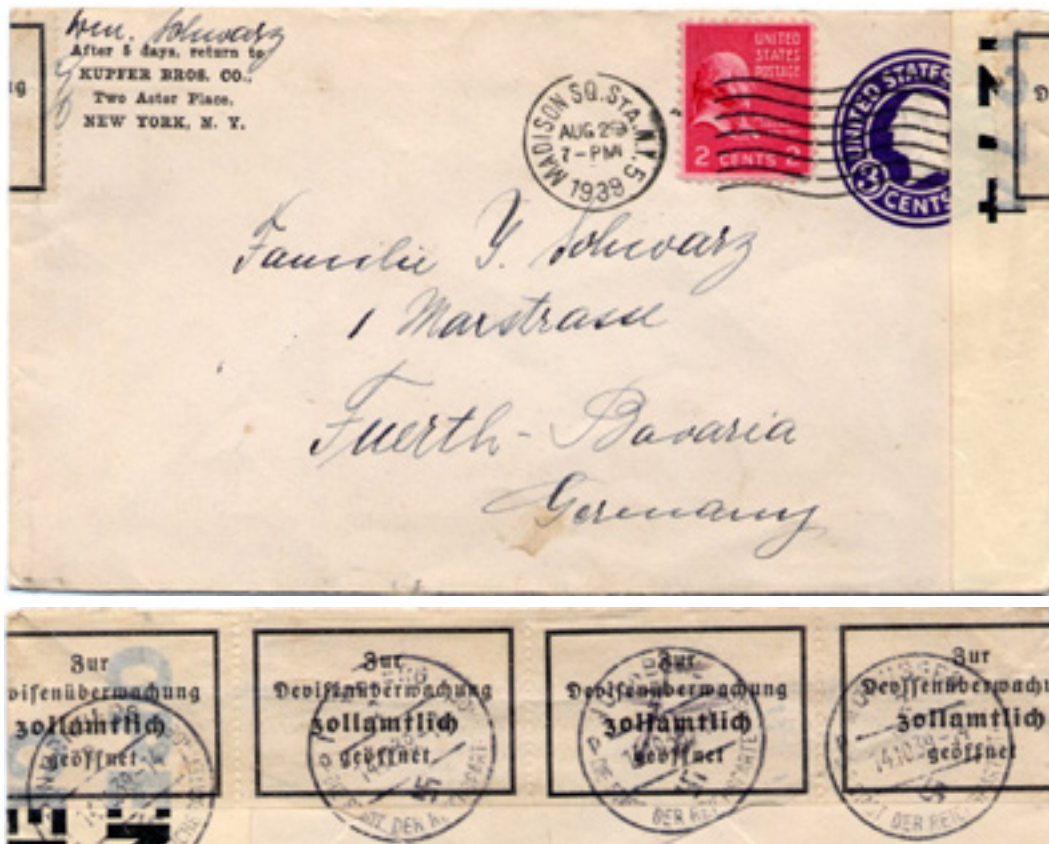 Wm. Schwarz
After 5 days, return to
KUPFER BROS. CO.,
Two Astor Place,
NEW YORK, N. Y.
MADISON SQ. STA. N.Y. 5
AUG 29
7-PM
1939
UNITED
STATES
POSTAGE
2 CENTS 2
UNITED STATES
3
CENTS
Familie Y. Schwarz
1 Marstrasse
Fuerth - Bavaria
Germany
Zur
Devisenüberwachung
zollamtlich
geöffnet
Zur
Devisenüberwachung
zollamtlich
geöffnet
Zur
Devisenüberwachung
zollamtlich
geöffnet
Zur
zollamtlich
geöffnet
14.10.39
DER REICHSPARTEI